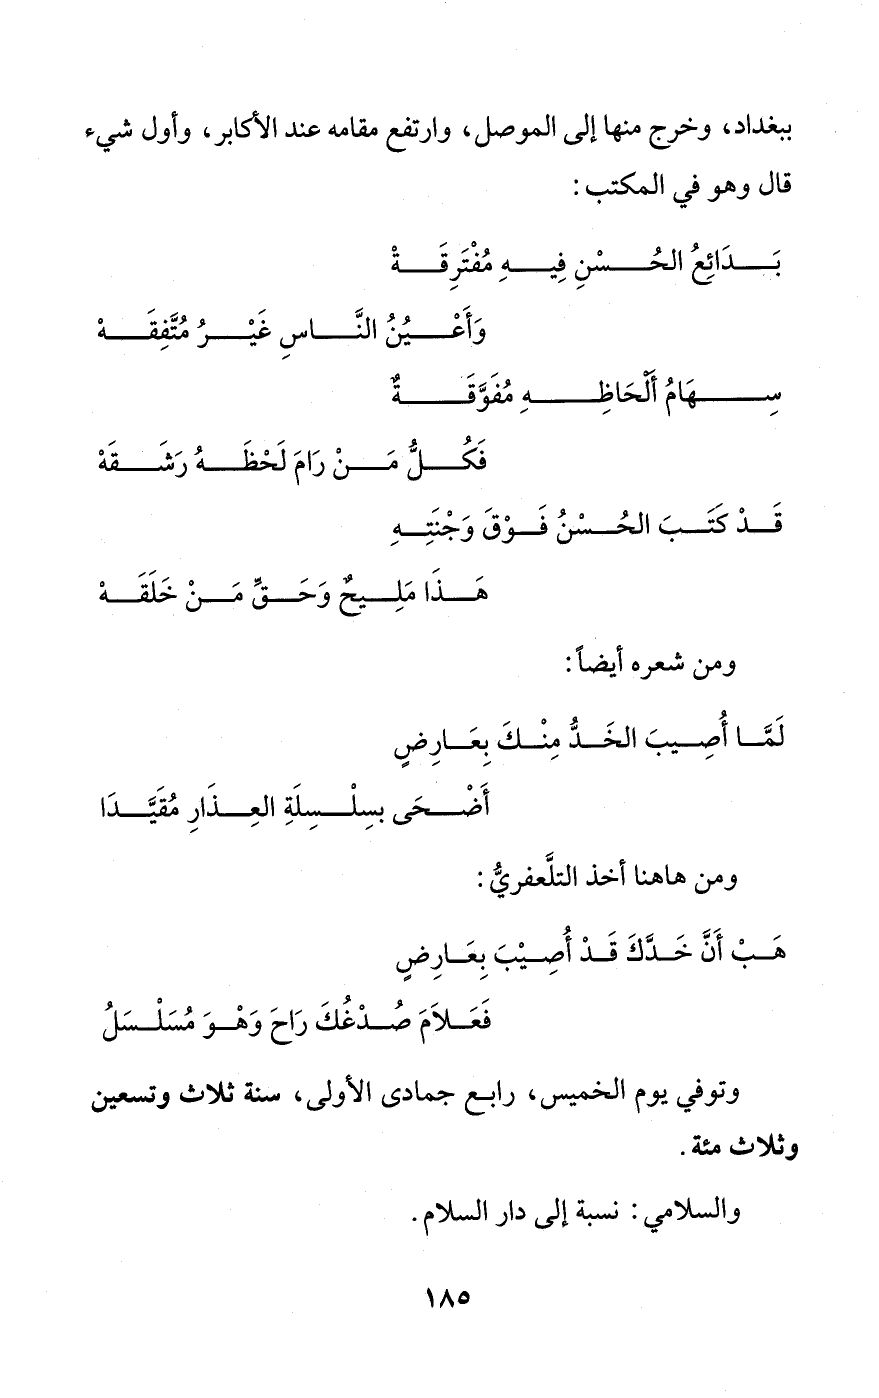 ببغداد، وخرج منها إلى الموصل، وارتفع مقامه عند الأكابر، وأول شيء
قال وهو في المكتب:
بَـدَائِعُ الحُـسْنِ فِيـهِ مُفْتَرِقَـةْ
وَأَعْـيُنُ النَّـاسِ غَيْـرُ مُتَّفِقَـهْ
سِـهَامُ أَلْحَاظِـهِ مُفَوَّقَـةٌ
فَكُـلُّ مَـنْ رَامَ لَحْظَـهُ رَشَـقَهْ
قَـدْ كَتَـبَ الحُـسْنُ فَـوْقَ وَجْنَتِـهِ
هَـذَا مَلِـيحٌ وَحَـقِّ مَـنْ خَلَقَـهْ
ومن شعره أيضاً:
لَمَّـا أُصِـيبَ الخَـدُّ مِنْـكَ بِعَـارِضٍ
أَضْـحَى بسِلْـسِلَةِ العِـذَارِ مُقَيَّـدَا
ومن هاهنا أخذ التلَّعفريُّ:
هَـبْ أَنَّ خَـدَّكَ قَـدْ أُصِـيْبَ بِعَـارِضٍ
فَعَـلاَمَ صُـدْغُكَ رَاحَ وَهْـوَ مُسَلْـسَلُ
وتوفي يوم الخميس، رابع جمادى الأولى، سنة ثلاث وتسعين
وثلاث مئة.
والسلامي: نسبة إلى دار السلام.
١٨٥